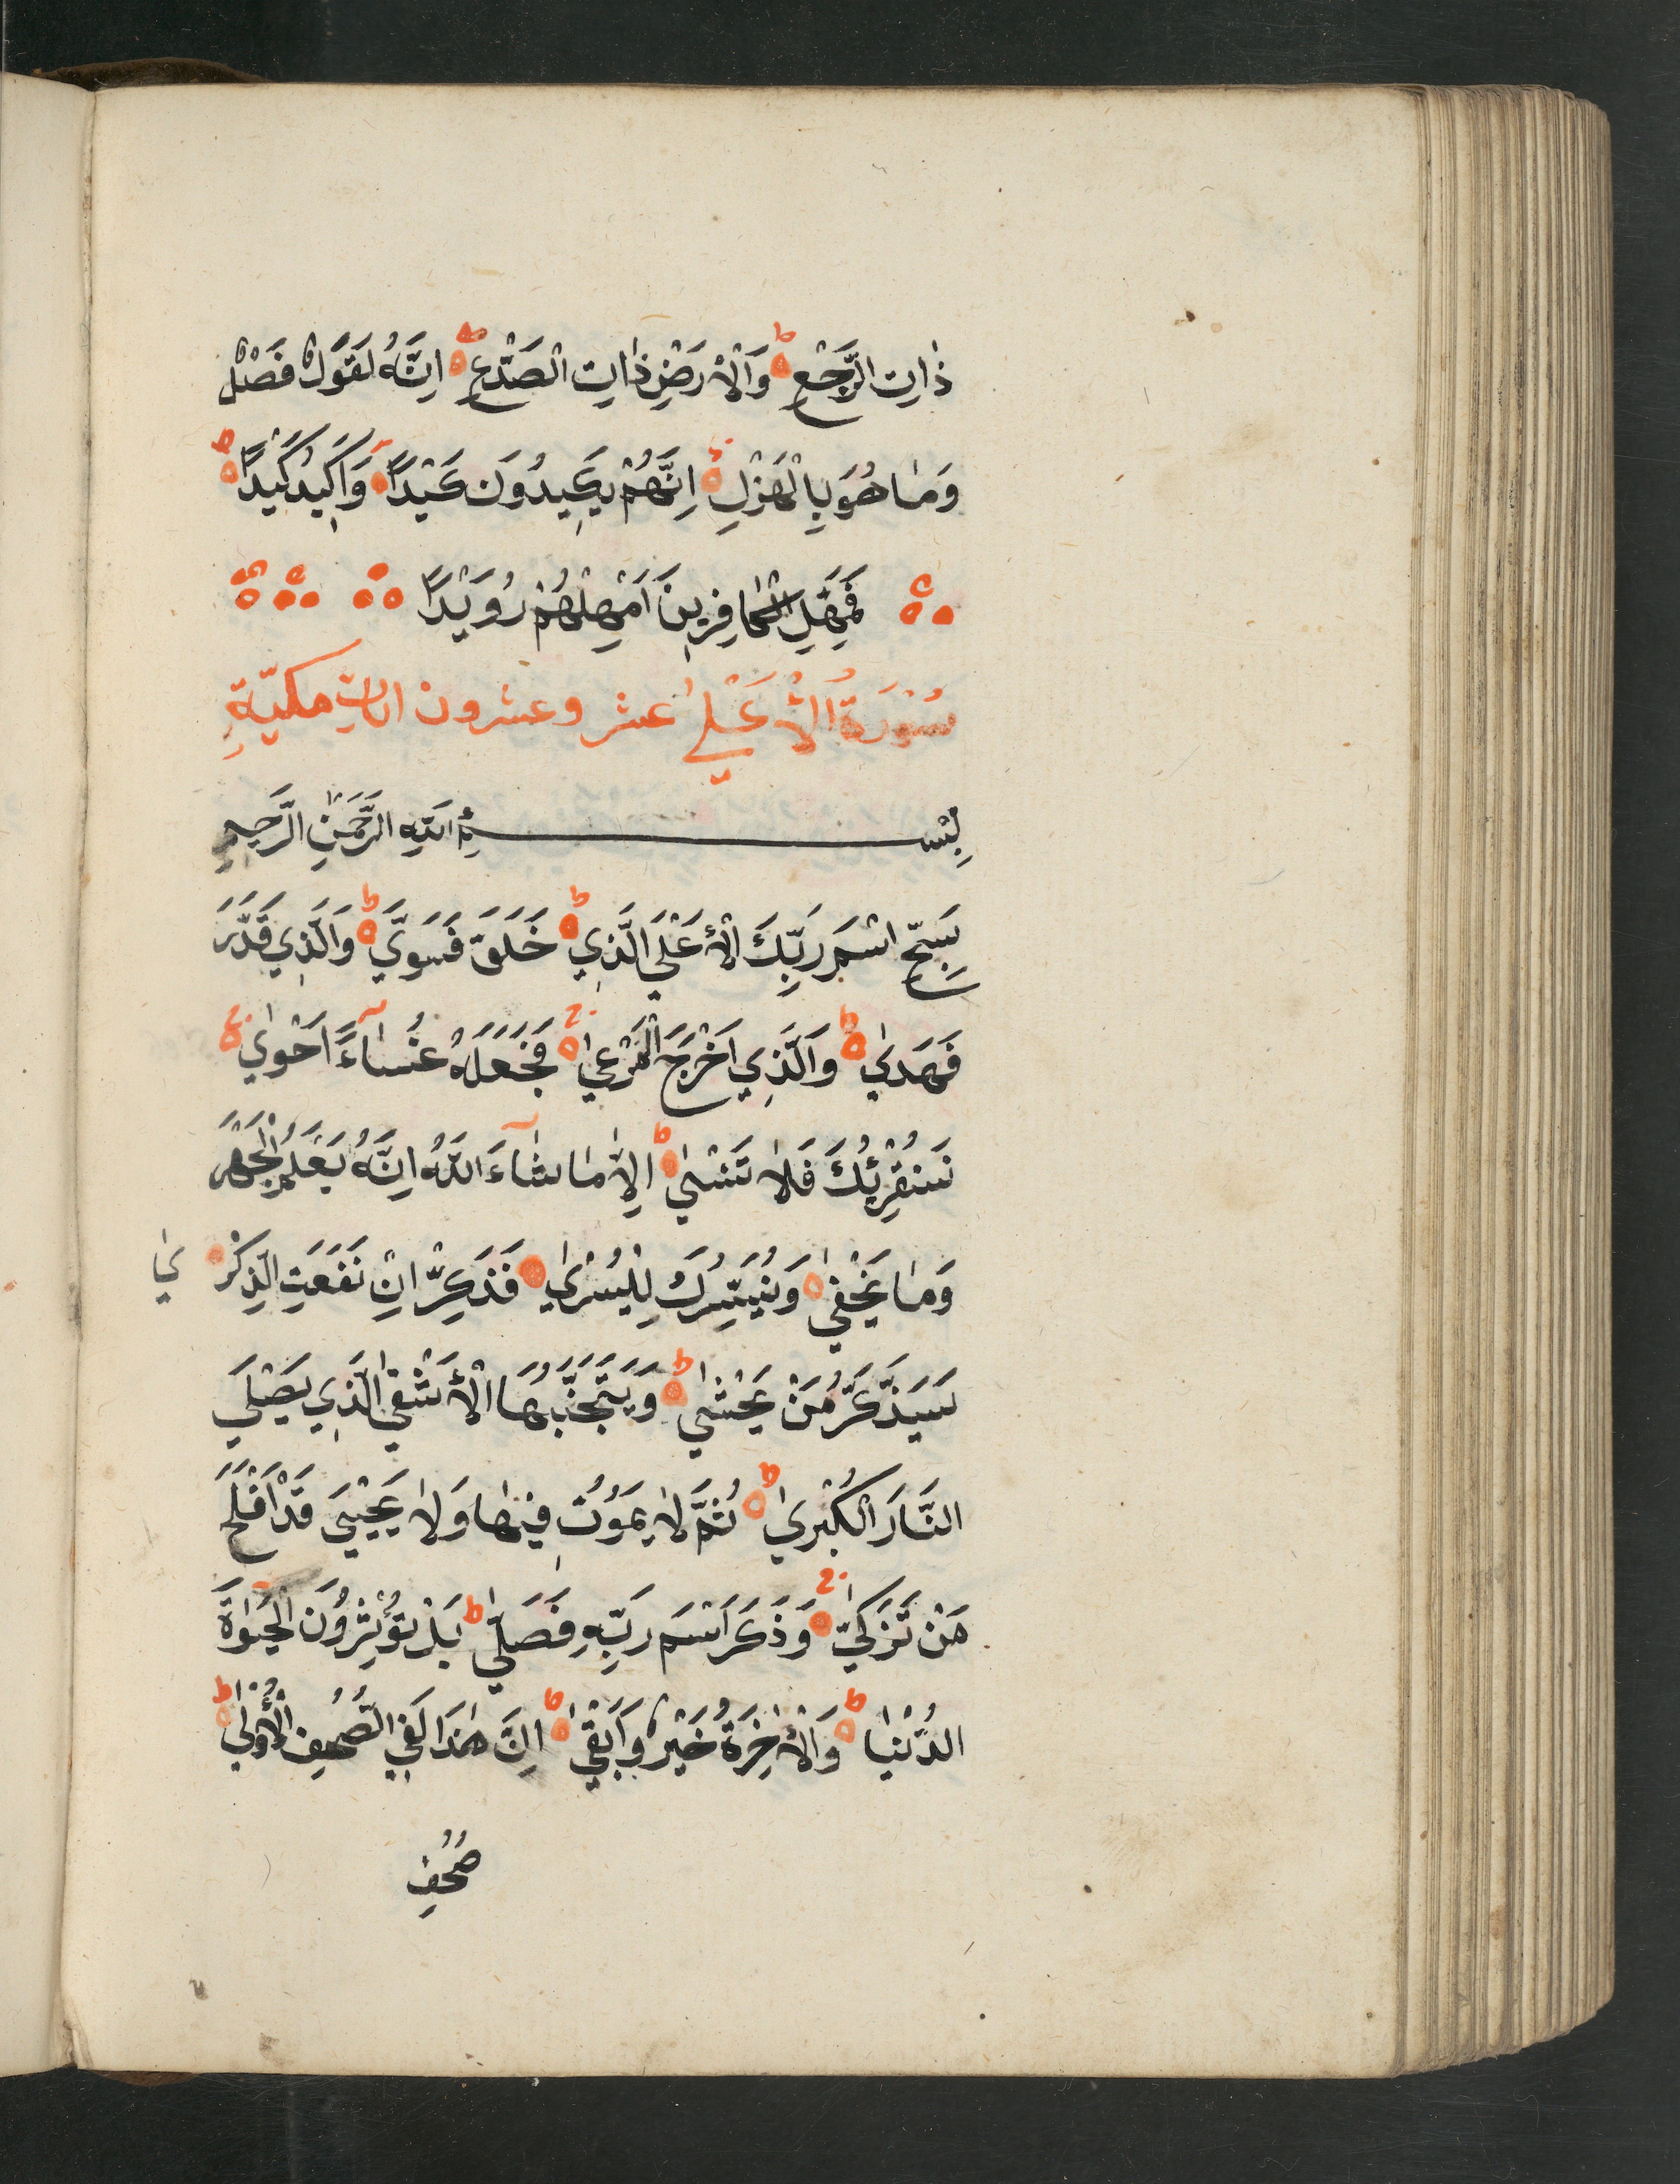 ذٰاتِ الرَّجْعِ ط وَالْاَرْضِ ذٰاتِ الصَّدْعِ ط اِنَّهُ لَقَوْلٌ فَصْلٌ
وَمٰا هُوَ بِالْهَزْلِ اِنَّهُمْ يَكِيدُونَ كَيْدًا وَاَكِيدُ كَيْدًا ط
فَمَهِّلِ الْكٰافِرِينَ اَمْهِلْهُمْ رُوَيْدًا
سُوْرَةُ الْاَعْلٰي عشر وعشرون اٰيات مكيّةِ
بِسْمِ اللّٰهِ الرَّحْمٰنِ الرَّحِيمِ
سَبِّحِ اسْمَ رَبِّكَ الْاَعْلَي الَّذِي ط خَلَقَ فَسَوَّيٰ ط وَالَّذِي قَدَّرَ
فَهَدٰي ط وَالَّذِي اَخْرَجَ الْمَرْعٰي فَجَعَلَهُ غُثٰاءً اَحْوٰي
سَنُقْرِئُكَ فَلاٰ تَنْسٰي ط اِلاّٰ مٰا شٰاءَ اللّٰهُ اِنَّهُ يَعْلَمُ الْجَهْرَ
وَمٰا يَخْفٰي وَنُيَسِّرُكَ لِلْيُسْرٰي فَذَكِّرْ اِنْ نَفَعَتِ الذِّكْرٰي
سَيَذَّكَّرُ مَنْ يَخْشٰي ط وَيَتَجَنَّبُهَا الْاَشْقٰي الَّذِي يَصْلَي
النَّارَ الْكُبْرٰي ط ثُمَّ لاٰ يَمُوتُ فِيهٰا وَلاٰ يَحْيَي قَدْ اَفْلَحَ
مَنْ تَزَكّٰي وَذَكَرَ اسْمَ رَبِّهِ فَصَلّٰي ط بَلْ تُؤْثِرُونَ الْحَيٰوةَ
الدُّنْيٰا ط وَالْاٰخِرَةُ خَيْرٌ وَاَبْقٰي ط اِنَّ هٰذَا لَفِي الصُّحُفِ الْاُولٰي ط
صُحُفِ